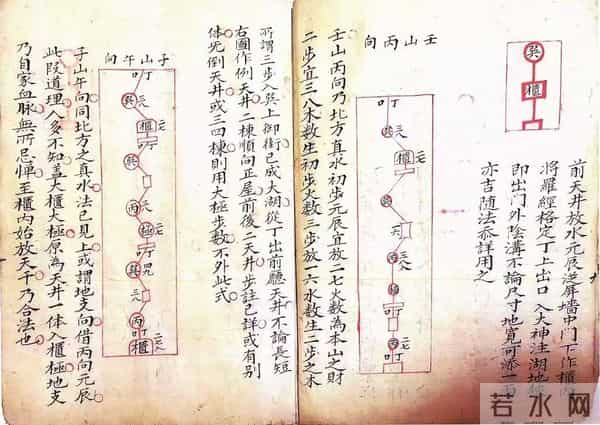 巽
櫃
前天井放水元辰
屏墻中門下作櫃
將羅經格定丁上出口入大神注湖地
即出門外陰溝不論尺寸地寬可添一
亦吉隨法叅詳用之
壬山丙向
叮
櫃
天
叮
壬山丙向乃北方直水初步元辰宜放二七火数為本山之財
二步宜三八木数生初步火数三步放一六水数生二步之木
所謂三步入巽上御街已成大湖從丁出前廳天井不論長短
右圖作例天井二棟順向正屋前後二天井步註已詳或有别
体先倒天井或三四棟則用大極步数不外此式
子山午向
叮
巽
櫃
丙
極
巽
丙
叮
櫃
子山午向同北方之真水法已見上或謂地支向借丙向元辰
此叚道理人多不知盖大櫃大極原為天井一体入櫃極地支
乃自家血脉無所忌憚至櫃内始放天干乃合法也
若水网